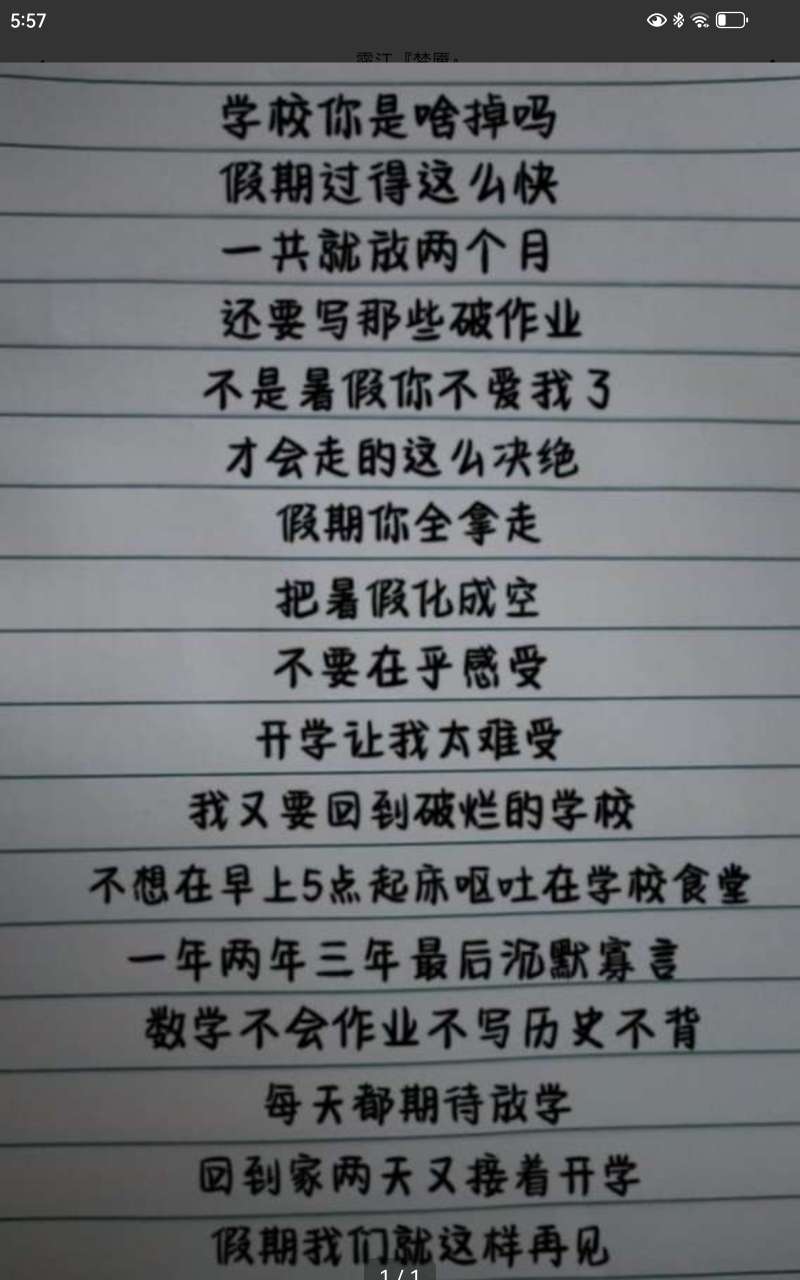 5:57
学校你是啥掉吗
假期过得这么快
一共就放两个月
还要写那些破作业
不是暑假你不爱我了
才会走的这么决绝
假期你全拿走
把暑假化成空
不要在乎感受
开学让我太难受
我又要回到破烂的学校
不想在早上5点起床呕吐在学校食堂
一年两年三年最后沉默寡言
数学不会作业不写历史不背
每天都期待放学
回到家两天又接着开学
假期我们就这样再见
1/1